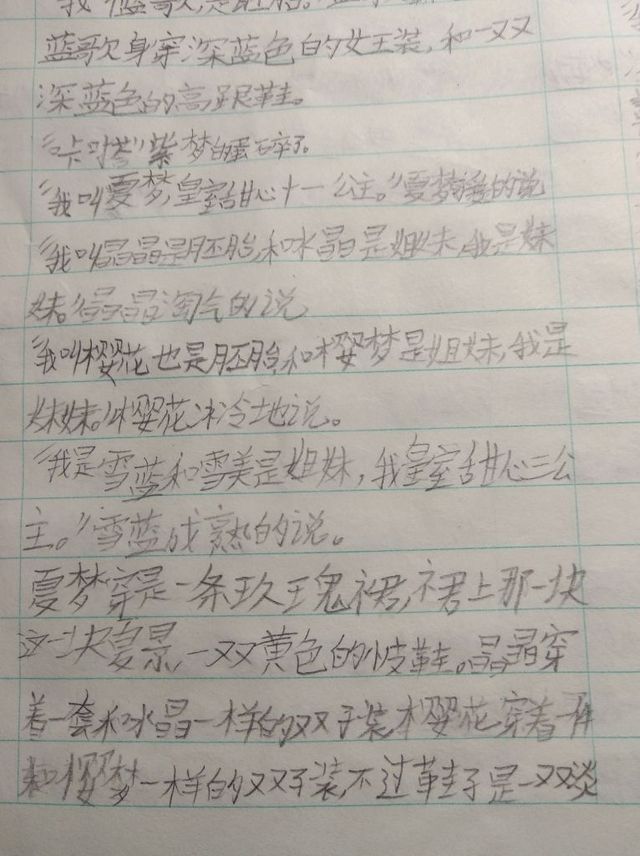 我
歌是胚胎。
蓝歌身穿深蓝色的女王装,和一双
深蓝色的高跟鞋。
“咔叶”紫梦的蛋碎了。
“我叫夏梦,皇室甜心十一公主。”夏梦的说
“我叫晶晶是胚胎,和冰晶是姐妹,我是妹
妹。”晶晶淘气的说
“我叫樱花也是胚胎和樱梦是姐妹,我是
妹妹。”樱花冰冷地说。
“我是雪蓝和雪美是姐妹,我皇室甜心三公
主。”雪蓝成熟的说。
夏梦穿是一条玫瑰裙,裙上那一块
这一块夏景,一双黄色的皮鞋。晶晶穿
着一套和冰晶一样的双子装,樱花穿着一件
和樱梦一样的双子装,不过鞋子是一双淡